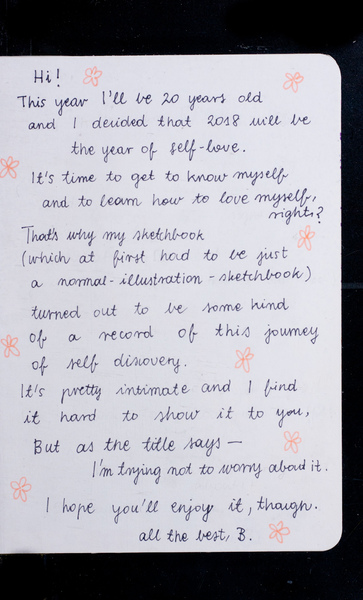 Hi!
This year I'll be 20 years old
and I decided that 2018 will be
the year of self-love.
It's time to get to know myself
and to learn how to love myself,
right?
That's why my sketchbook
(which at first had to be just
a normal-illustration-sketchbook)
turned out to be some kind
of a record of this journey
of self discovery.
It's pretty intimate and I find
it hard to show it to you,
But as the title says —
I'm trying not to worry about it.
I hope you'll enjoy it, though.
all the best, B.